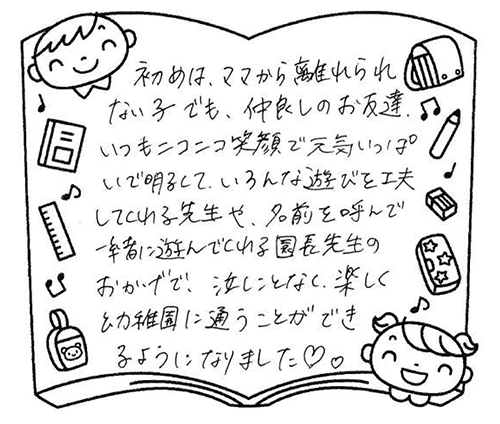 初めは、ママから離れられ
ない子でも、仲良しのお友達、
いつもニコニコ笑顔で元気いっぱ
いで明るくて、いろんな遊びを工夫
してくれる先生や、名前を呼んで
一緒に遊んでくれる園長先生の
おかげで、泣くことなく、楽しく
幼稚園に通うことができ
るようになりました♡。